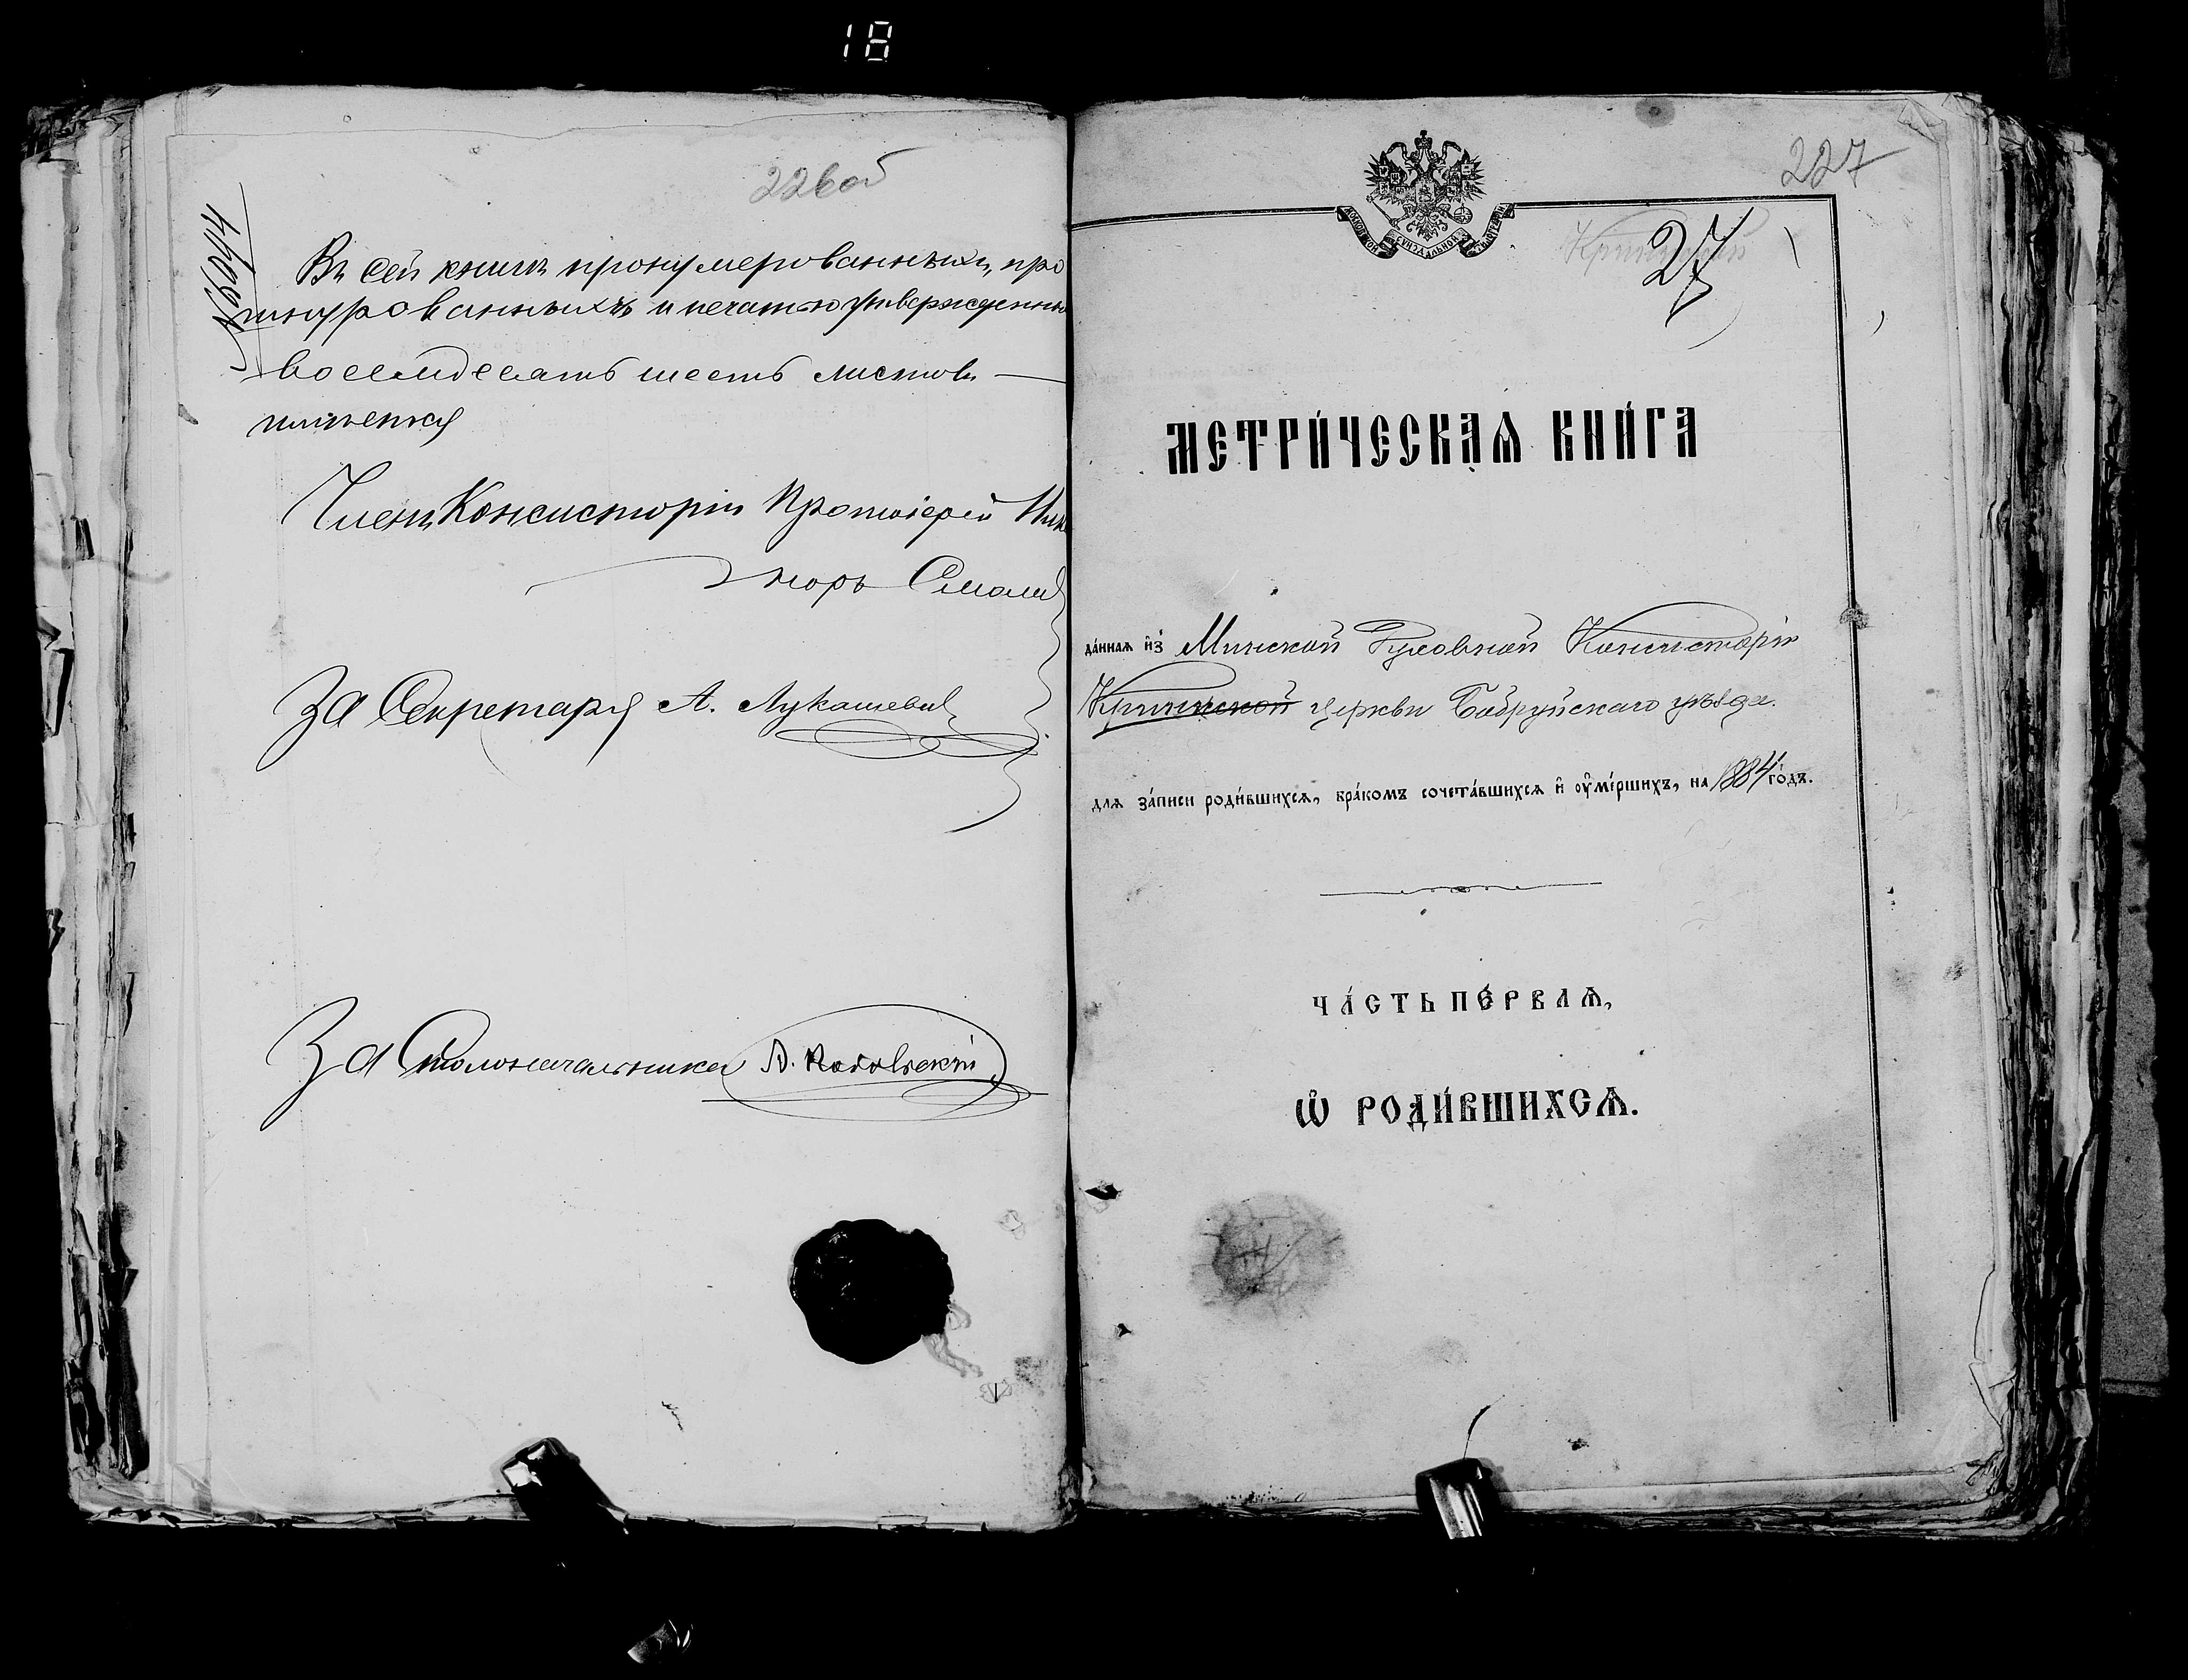 18
226об
№6994
Въ сей книгѣ пронумерованныхъ, про
шнурованныхъ и печатью утвержденны
восемдесятъ шесть листовъ —
имѣется
Членъ Консисторіи Протоіерей
Смол
За Секретаря А. Лукашевич
За Столоначальника А.
227
27
МЕТРИ́ЧЕСКАѦ КНИ́ГА
да́ннаѧ и҆з̾ Минской Духовной Консисторіи
Критшской церкви Бобруйскаго уѣзда.
длѧ за́писи роди́вшихсѧ, бра́комъ сочета́вшихсѧ и҆ ᲂу҆ме́ршихъ, на 1884 го́дъ.
ЧА́СТЬ ПЕ́РВАѦ,
Ѡ҆ РОДИ́ВШИХСѦ.